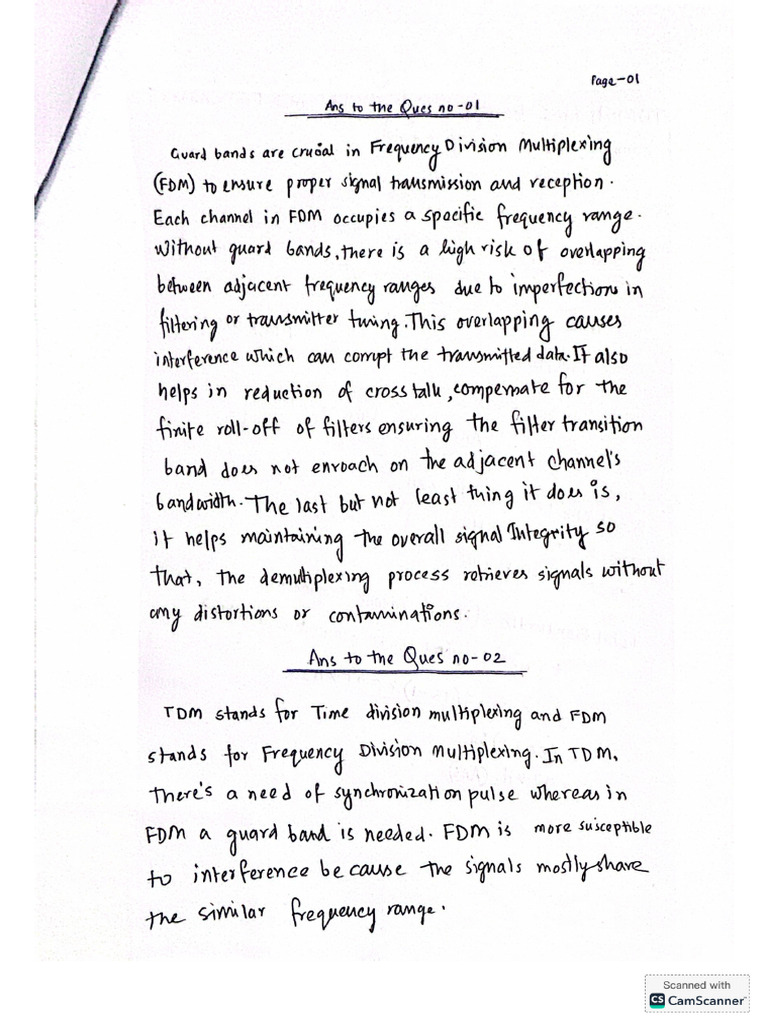 Page-01
Ans to the Ques no-01
Guard bands are crucial in Frequency Division Multiplexing
(FDM) to ensure proper signal transmission and reception.
Each channel in FDM occupies a specific frequency range.
Without guard bands, there is a high risk of overlapping
between adjacent frequency ranges due to imperfection in
filtering or transmitter tuning. This overlapping causes
interference which can corrupt the transmitted data. It also
helps in reduction of cross talk, compensate for the
finite roll-off of filters ensuring the filter transition
band does not enroach on the adjacent channel's
bandwidth. The last but not least thing it does is,
it helps maintaining the overall signal Integrity so
that, the demultiplexing process retrieves signals without
any distortions or contaminations.
Ans to the Ques no-02
TDM stands for Time division multiplexing and FDM
stands for Frequency Division Multiplexing. In TDM,
there's a need of synchronization pulse whereas in
FDM a guard band is needed. FDM is more susceptible
to interference because the signals mostly share
the similar frequency range.
Scanned with
CS CamScanner